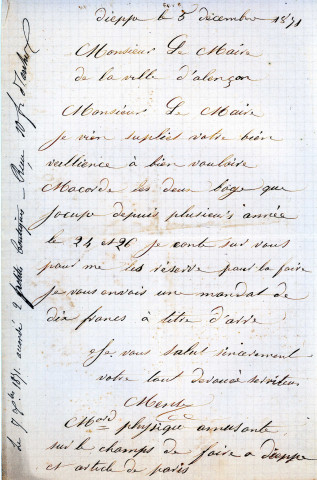 dieppe le 5 décembre 1871
Monsieur Le Maire
de la ville d'alençon
Monsieur Le Maire
je vien supliés votre bien
veillience à bien vouloire
Macorde les deux loge que
jocupe depuis plusieurs année
le 24 et 26 je conte sur vous
pour me les réserve pour la foire
je vous envais un mandat de
dix francs à titre d'arre
Je vous salut sincerement
votre tout dévoué serviteur
Md physique amusante
sur le champs de foire a dieppe
et article de paris
Le 7 Xbre 1871 accordé 2 petites boutiques - Reçu 10 fr